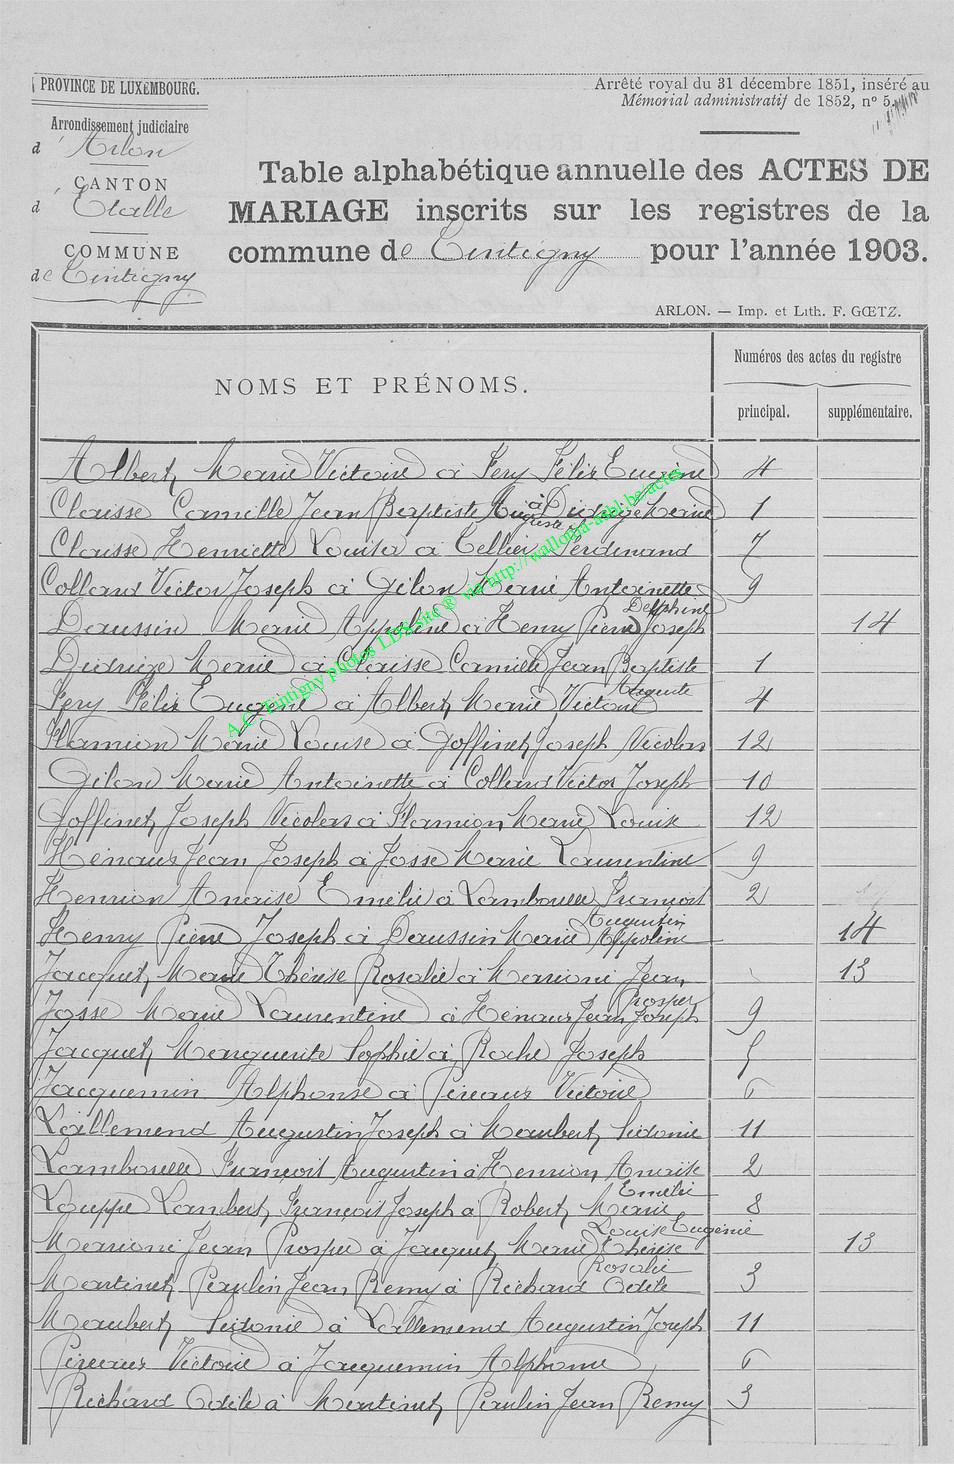 PROVINCE DE LUXEMBOURG.
Arrondissement judiciaire
d'Arlon
CANTON
d'Etalle
COMMUNE
de Tintigny
Arrêté royal du 31 décembre 1851, inséré au
Mémorial administratif de 1852, nº 5.
Table alphabétique annuelle des ACTES DE
MARIAGE inscrits sur les registres de la
commune de Tintigny pour l'année 1903.
ARLON. — Imp. et Lith. F. GŒTZ.
NOMS ET PRÉNOMS.
Numéros des actes du registre
principal.
supplémentaire.
Albert Marie Victoire à Fery Félix Eugène 4
Claisse Camille Jean Baptiste Auguste à Didrige Marie 1
Claisse Henriette Louisa à Tellier Ferdinand 7
Collard Victor Joseph à Gilon Marie Antoinette 9
Delphine
Daussin Marie Appoline à Henry Pierre Joseph 14
Didrige Marie à Claisse Camille Jean Baptiste 1
Auguste
Fery Félix Eugène à Albert Marie Victoire 4
Flamion Marie Louise à Goffinet Joseph Nicolas 12
Gilon Marie Antoinette à Collard Victor Joseph 10
Goffinet Joseph Nicolas à Flamion Marie Louise 12
Henaux Jean Joseph à Josse Marie Laurentine 9
Henrion Anaïse Emélie à Lamboulle François 2
Augustin
Henry Pierre Joseph à Daussin Marie Appoline 14
Jacquet Marie Thérèse Rosalie à Marrioni Jean 13
Prosper
Josse Marie Laurentine à Henaux Jean Joseph 9
Jacquet Marguerite Sophie à Roche Joseph 5
Jacquemin Alphonse à Pireaux Victoire 6
Lallemend Augustin Joseph à Maubert Sidonie 11
Lamboulle François Augustin à Henrion Anaïse 2
Emélie
Louppe Lambert François Joseph à Robert Marie 8
Louise Eugénie
Marrioni Jean Prosper à Jacquet Marie Thérèse 13
Rosalie
Martinet Paulin Jean Remy à Richard Odile 3
Maubert Sidonie à Lallemend Augustin Joseph 11
Pireaux Victoire à Jacquemin Alphonse 6
Richard Odile à Martinet Paulin Jean Remy 3
A.C. Tintigny photos LDS site ® via http://wallonia-asbl.be/actes